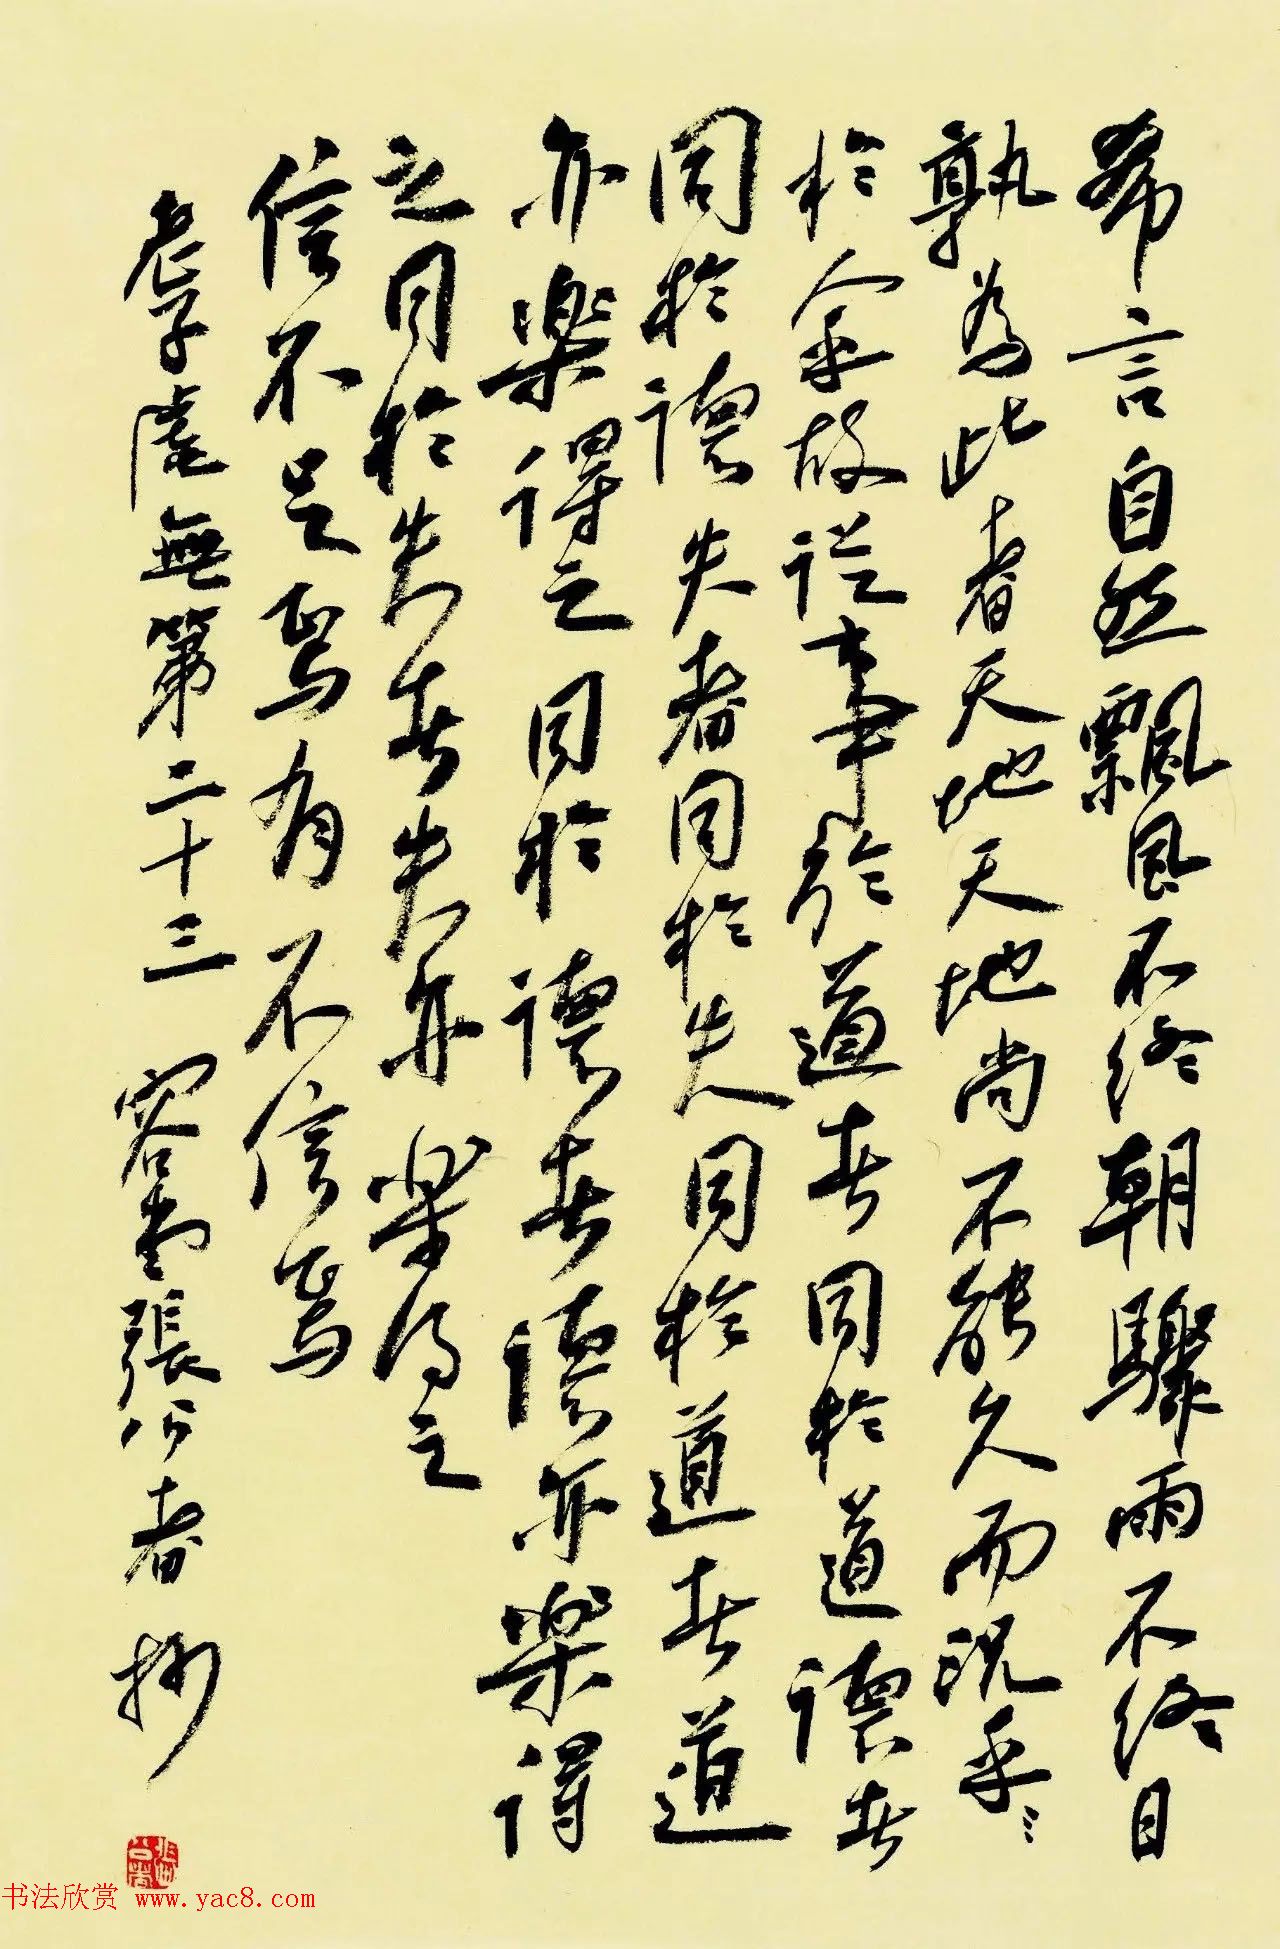 希言自然飄風不终朝驟雨不终日
孰為此者天地天地尚不能久而況乎
於人乎故從事於道者同於道德者
同於德失者同於失同於道者道
亦樂得之同於德者德亦樂得
之同於失者失亦樂得之
信不足焉有不信焉
老子虛無第二十三 容堂張公者抄
书法欣赏 www.yac8.com